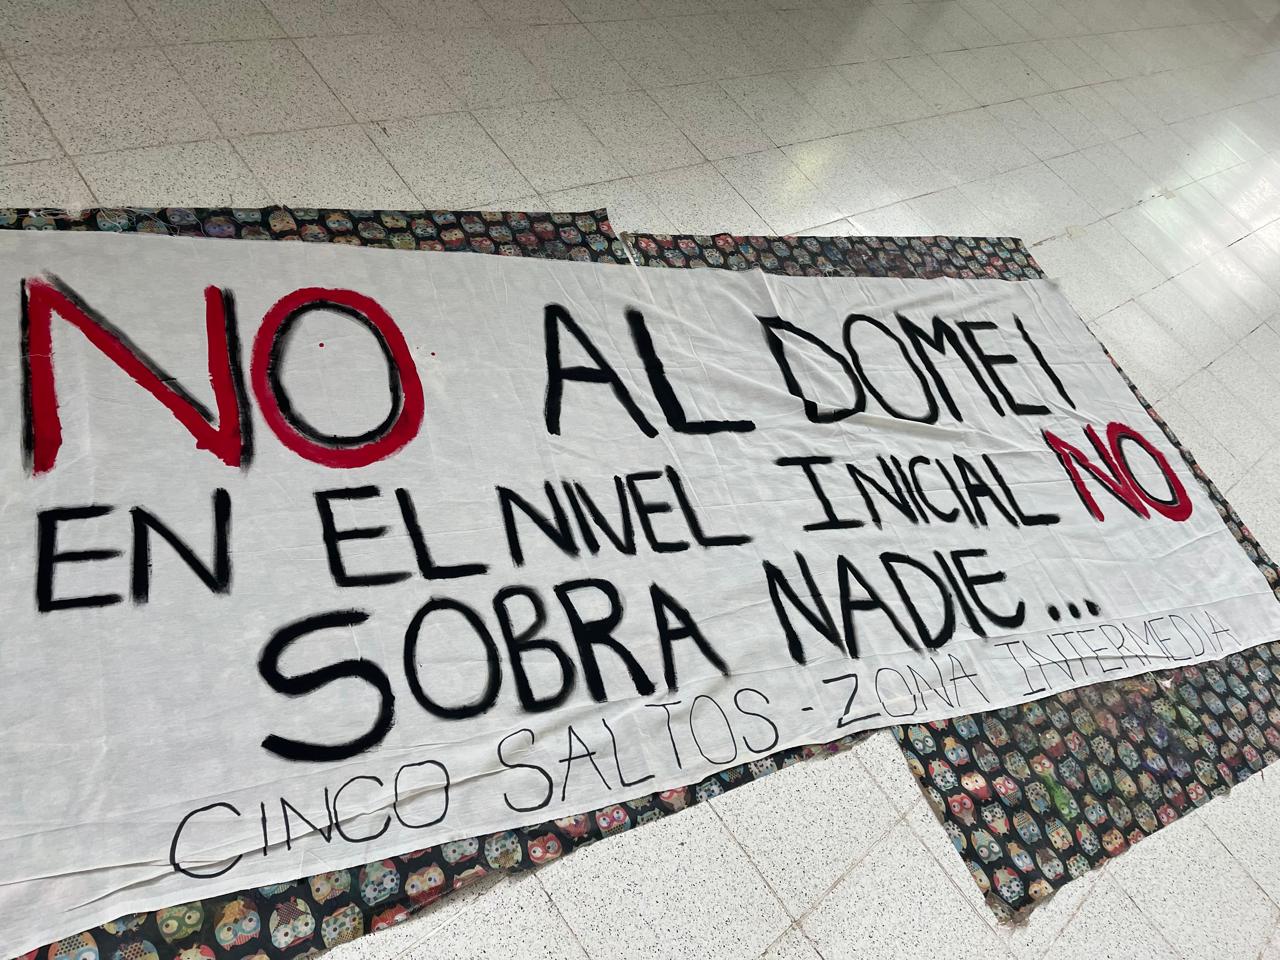 NO AL DOMEI
EN EL NIVEL INICIAL NO
SOBRA NADIE...
CINCO SALTOS - ZONA INTERMEDIA